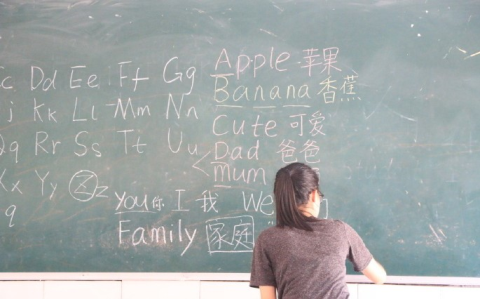 c Dd Ee Ff Gg Apple 苹果
Banana 香蕉
j Kk Ll Mm Nn
Cute 可爱
q Rr Ss Tt Uu
Dad 爸爸
mum
Xx Yy Zz
you 你 I 我 We
q Family 家庭